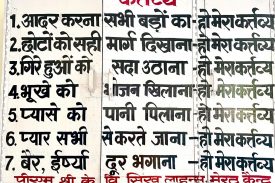 कर्तव्य
1. आदर करना सभी बड़ों का - हो मेरा कर्त्तव्य
2. छोटों को सही मार्ग दिखाना - हो मेरा कर्त्तव्य
3. गिरे हुओं को सदा उठाना - हो मेरा कर्त्तव्य
4. भूखे को भोजन खिलाना - हो मेरा कर्त्तव्य
5. प्यासे को पानी पिलाना - हो मेरा कर्त्तव्य
6. प्यार सभी से करते जाना - हो मेरा कर्त्तव्य
7. बैर, ईर्ष्या दूर भगाना - हो मेरा कर्त्तव्य
पीएम श्री के वि सिख लाइन्स मेरठ कैन्ट